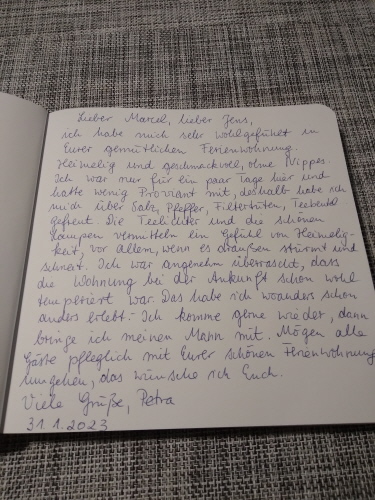 Lieber Marcel, lieber Jens,
ich habe mich sehr wohlgefühlt in
Eurer gemütlichen Ferienwohnung.
Heimelig und geschmackvoll, ohne Nippes.
Ich war nur für ein paar Tage hier und
hatte wenig Proviant mit, deshalb habe ich
mich über Salz, Pfeffer, Filtertüten, Teebeutel
gefreut. Die Teelichter und die schönen
Lampen vermitteln ein Gefühl von Heimelig-
keit, vor allem, wenn es draußen stürmt und
schneit. Ich war angenehm überrascht, dass
die Wohnung bei der Ankunft schon wohl
temperiert war. Das habe ich woanders schon
anders erlebt. Ich komme gerne wieder, dann
bringe ich meinen Mann mit. Mögen alle
Gäste pfleglich mit Eurer schönen Ferienwohnung
umgehen, das wünsche ich Euch.
Viele Grüße, Petra
31.1.2023